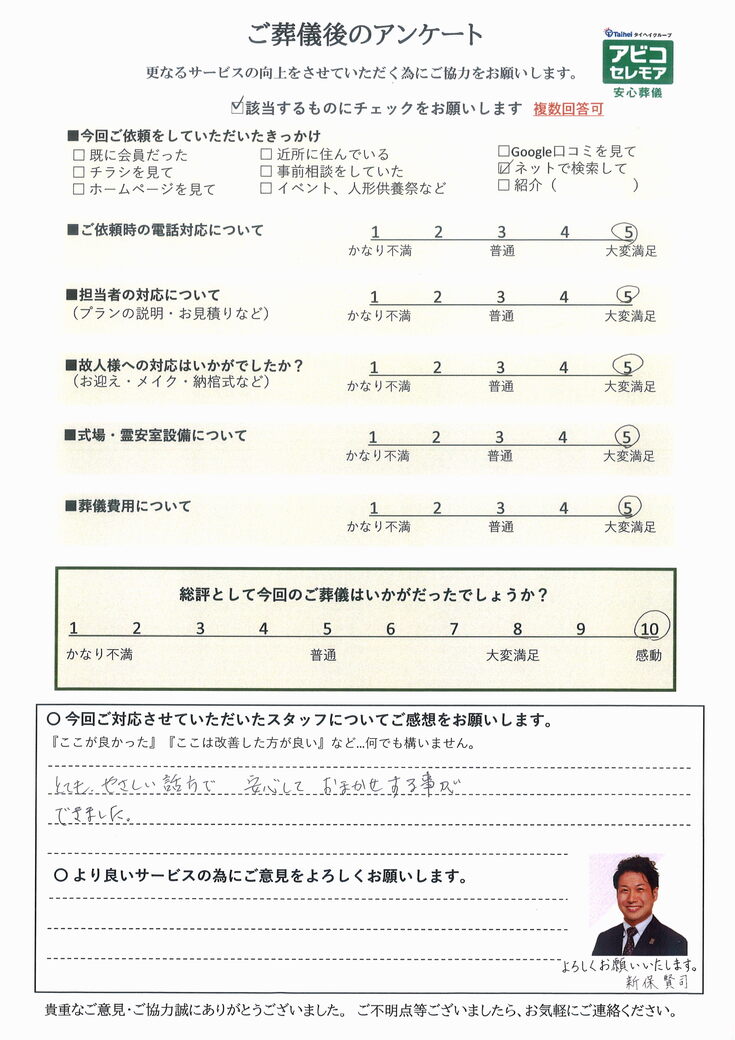 ご葬儀後のアンケート
Taihei タイヘイグループ
アビコ
セレモア
安心葬儀
更なるサービスの向上をさせていただく為にご協力をお願いします。
☑該当するものにチェックをお願いします 複数回答可
■今回ご依頼をしていただいたきっかけ
☐ 既に会員だった ☐ 近所に住んでいる ☐Google口コミを見て
☐ チラシを見て ☐ 事前相談をしていた ☑ ネットで検索して
☐ ホームページを見て ☐ イベント、人形供養祭など ☐ 紹介（ ）
■ご依頼時の電話対応について 1 2 3 4 5
かなり不満 普通 大変満足
■担当者の対応について 1 2 3 4 5
（プランの説明・お見積りなど） かなり不満 普通 大変満足
■故人様への対応はいかがでしたか？ 1 2 3 4 5
（お迎え・メイク・納棺式など） かなり不満 普通 大変満足
■式場・霊安室設備について 1 2 3 4 5
かなり不満 普通 大変満足
■葬儀費用について 1 2 3 4 5
かなり不満 普通 大変満足
総評として今回のご葬儀はいかがだったでしょうか？
1 2 3 4 5 6 7 8 9 10
かなり不満 普通 大変満足 感動
〇 今回ご対応させていただいたスタッフについてご感想をお願いします。
『ここが良かった』『ここは改善した方が良い』など...何でも構いません。
とても、やさしい話方で 安心して おまかせする事が
できました。
〇 より良いサービスの為にご意見をよろしくお願いします。
よろしくお願いいたします。
新保 賢司
貴重なご意見・ご協力誠にありがとうございました。 ご不明点等ございましたら、お気軽にご連絡ください。